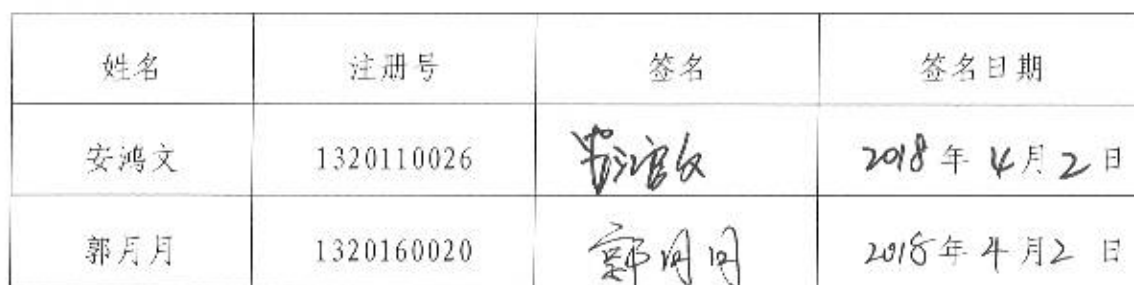 姓名 注册号 签名 签名日期
安鸿文 1320110026 安鸿文 2018年4月2日
郭月月 1320160020 郭月月 2018年4月2日